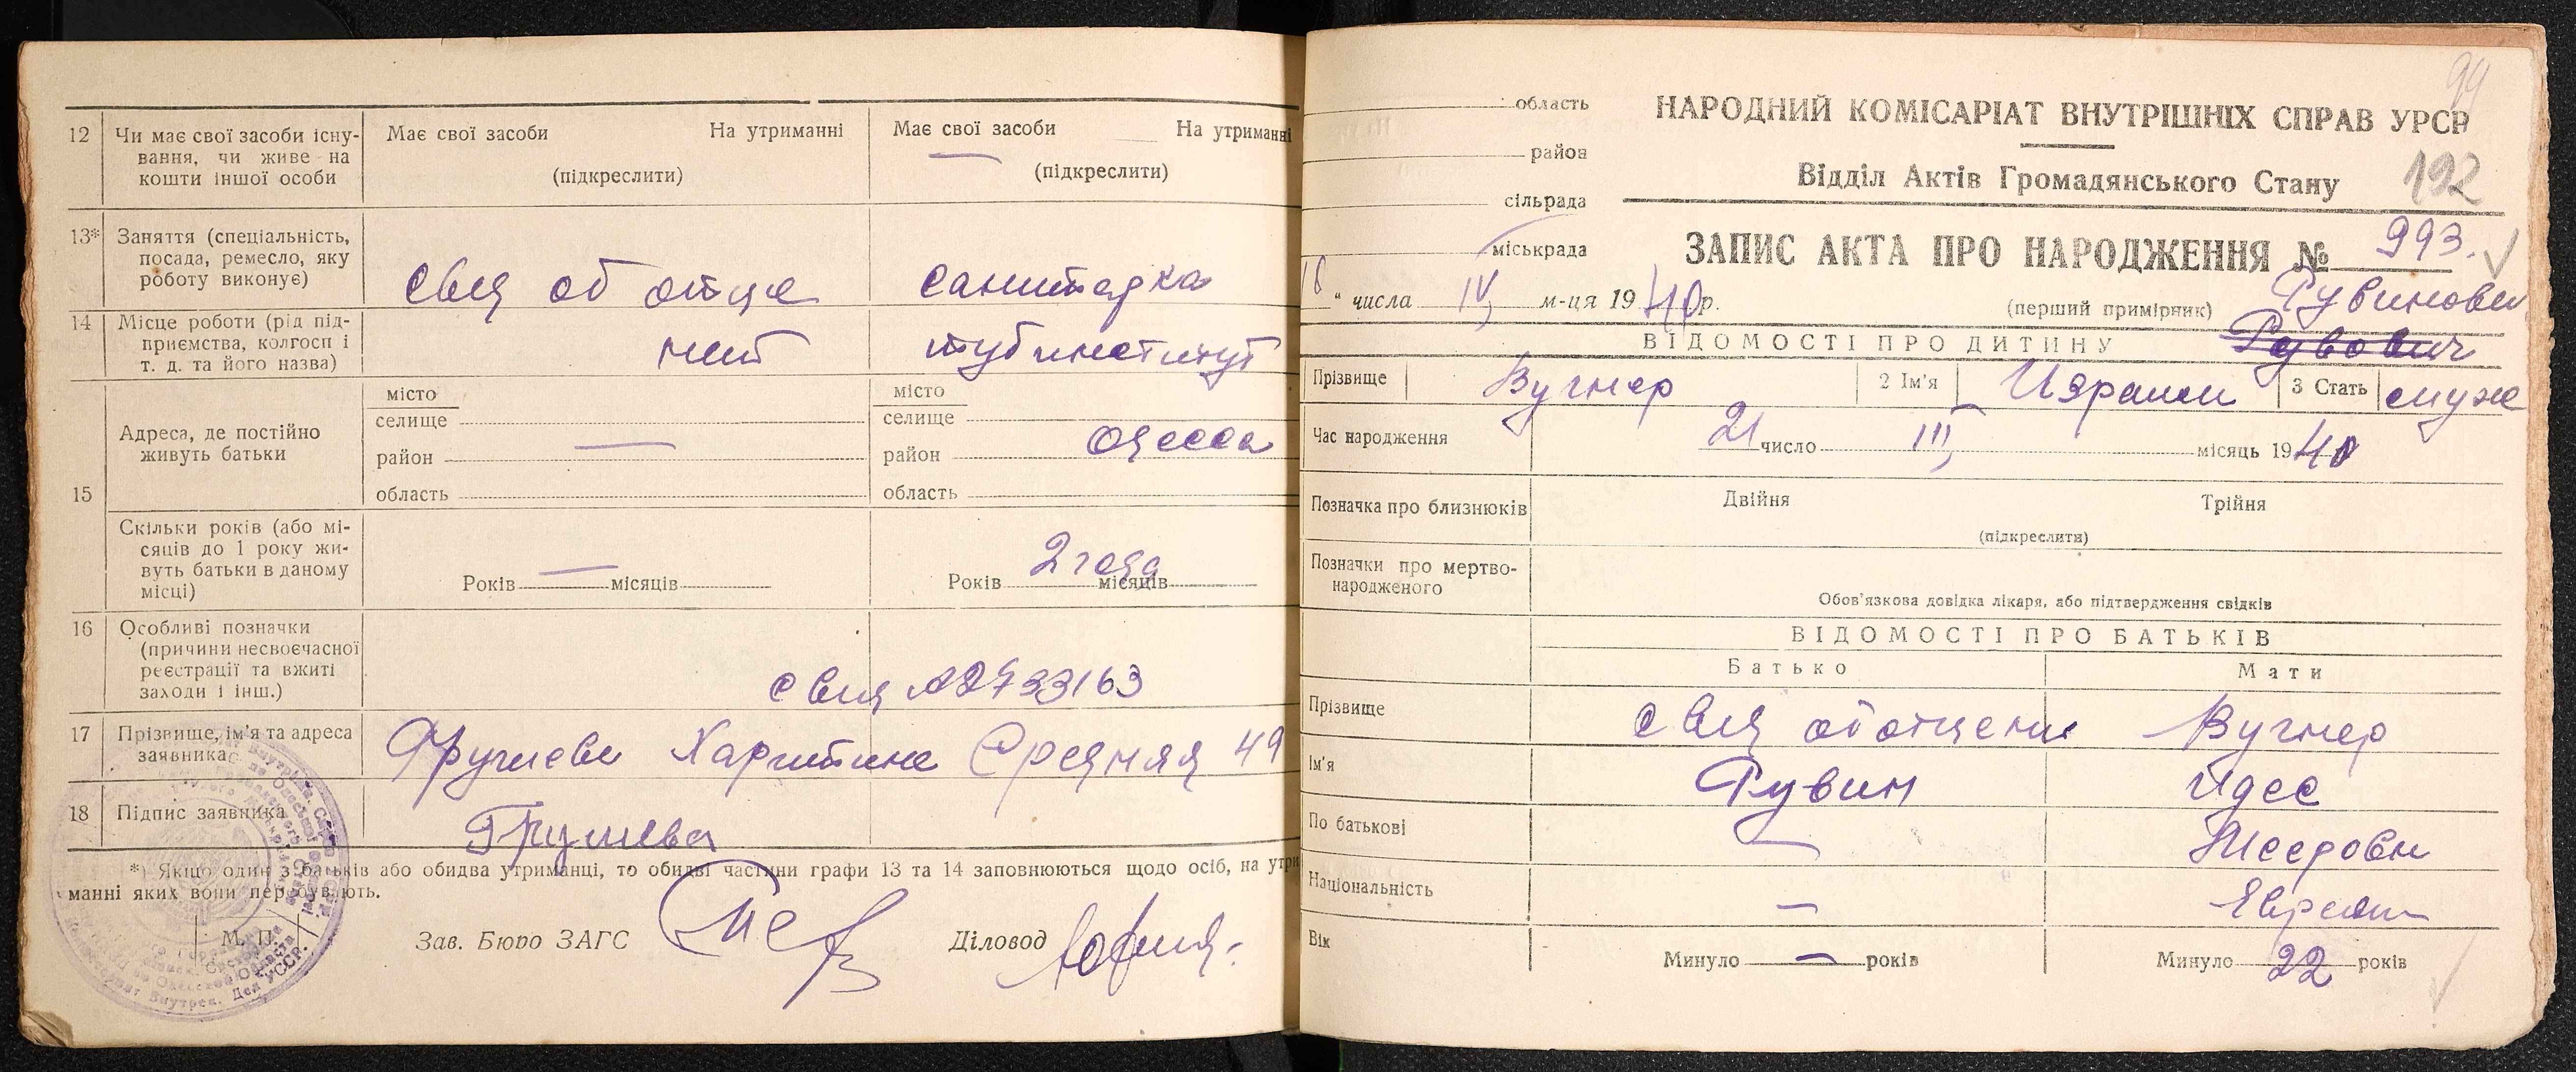 12 Чи має свої засоби існу-
вання, чи живе на
кошти іншої особи
Має свої засоби На утриманні
(підкреслити)
Має свої засоби На утриманні
(підкреслити)
13* Заняття (спеціальність,
посада, ремесло, яку
роботу виконує)
свед об отце
санитарка
14 Місце роботи (рід під-
приємства, колгосп і
т. д. та його назва)
нет
тубинститут
15 Адреса, де постійно
живуть батьки
місто
селище
район —
область
місто
селище
район Одесса
область
Скільки років (або мі-
сяців до 1 року жи-
вуть батьки в даному
місці)
Років — місяців
Років 2 года місяців
16 Особливі позначки
(причини несвоєчасної
реєстрації та вжиті
заходи і інш.)
17 Прізвище, ім'я та адреса
заявника
Харитина Средняя 49
18 Підпис заявника
*) Якщо один з батьків або обидва утриманці, то обидві частини графи 13 та 14 заповнюються щодо осіб, на утри
манні яких вони перебувають.
М. П.
Зав. Бюро ЗАГС
Діловод
99
область
район
сільрада
міськрада
НАРОДНИЙ КОМІСАРІАТ ВНУТРІШНІХ СПРАВ УРСР
Відділ Актів Громадянського Стану
192
ЗАПИС АКТА ПРО НАРОДЖЕННЯ № 993.
" числа IV м-ця 1940 р.
(перший примірник)
Рувинович
Рувович
ВІДОМОСТІ ПРО ДИТИНУ
Прізвище Вугнер 2 Ім'я Израил 3 Стать муж
Час народження 21 число III місяць 1940
Позначка про близнюків Двійня Трійня
(підкреслити)
Позначки про мертво-
народженого
Обов'язкова довідка лікаря, або підтвердження свідків
ВІДОМОСТІ ПРО БАТЬКІВ
Батько Мати
Прізвище свед об отце нет Вугнер
Ім'я Рувин Идес
По батькові —
Національність — Еврейка
Вік Минуло — років Минуло 22 років